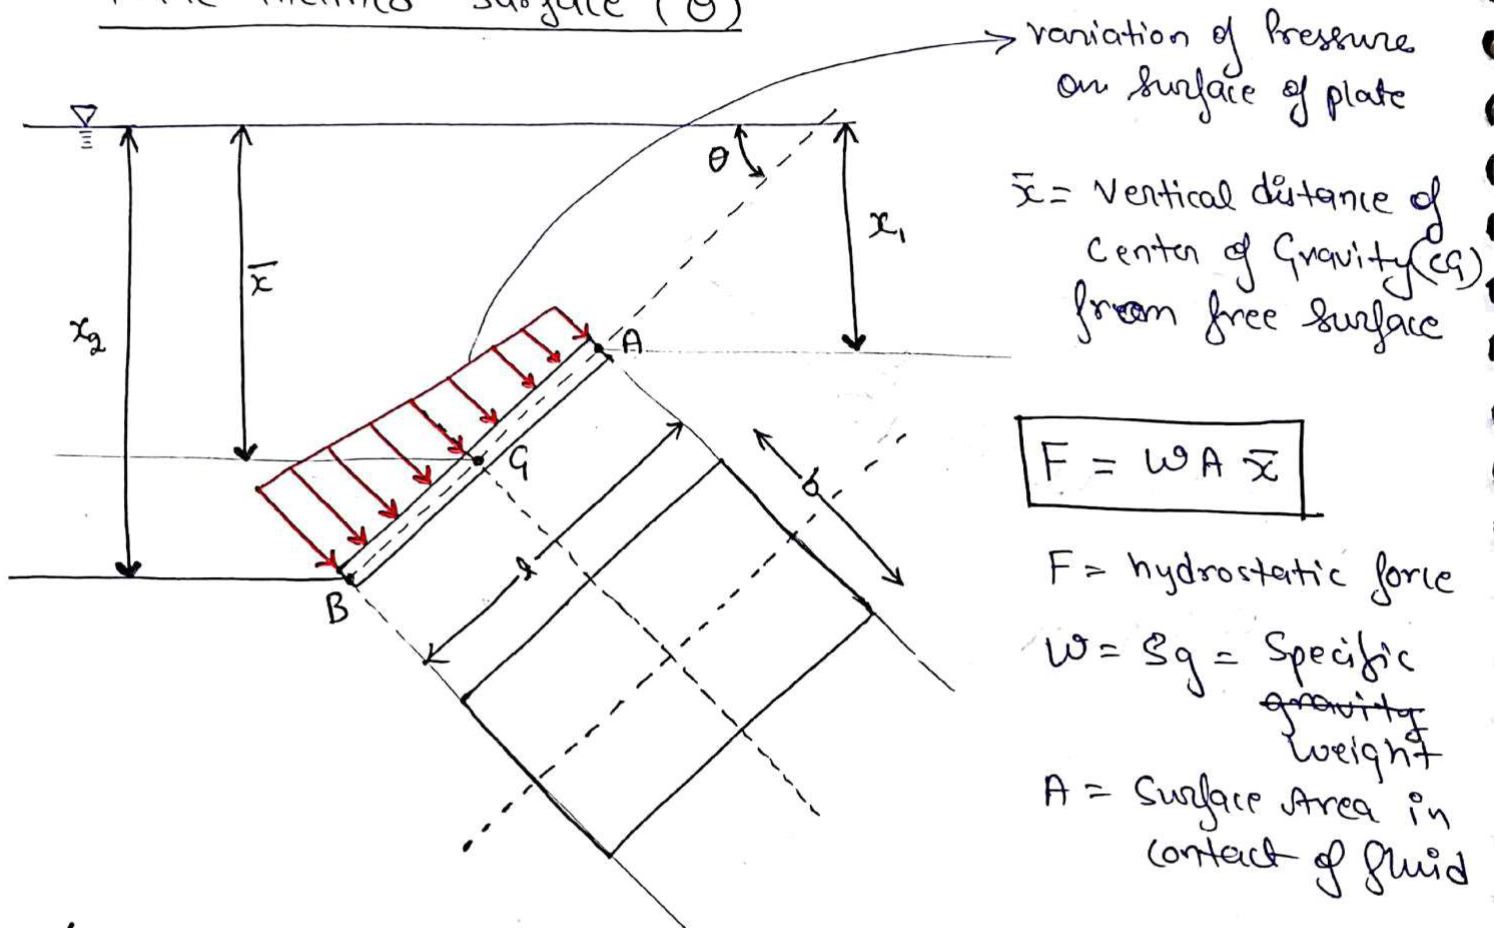 surface (θ)
variation of Pressure
on surface of plate
θ
x₁
x̄
x₂
x̄ = Vertical distance of
Center of Gravity (CG)
from free surface
A
G
B
l
b
F = W A x̄
F = hydrostatic force
W = Sg = Specific
gravity
weight
A = Surface Area in
contact of fluid